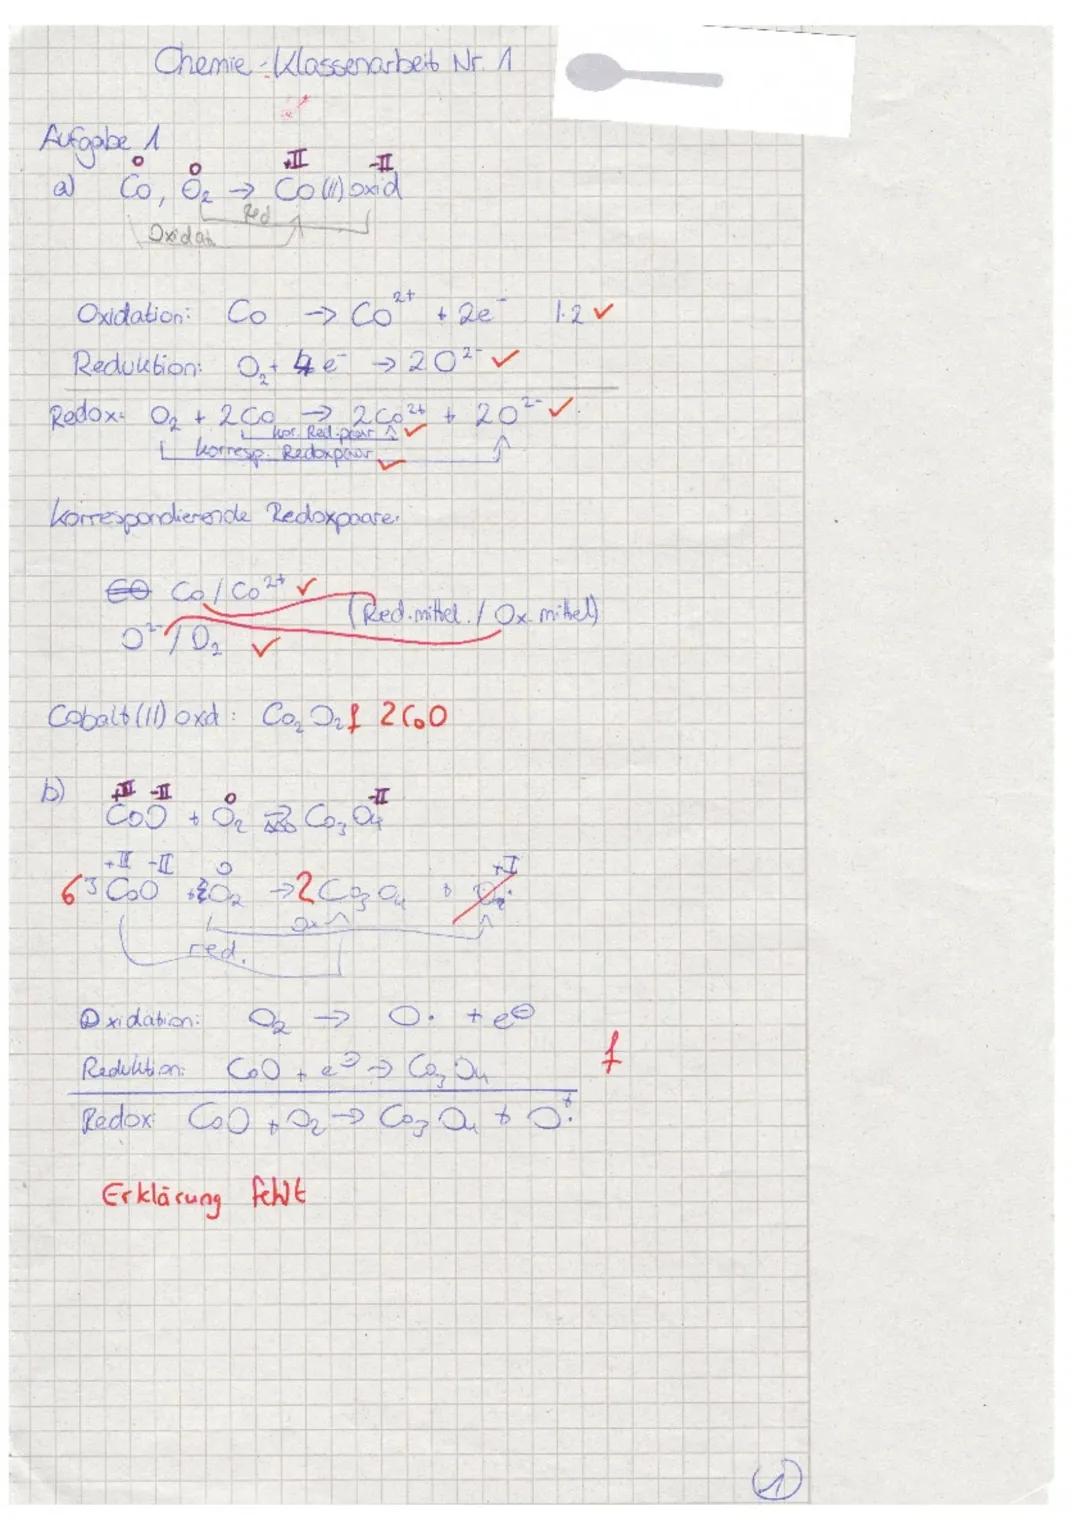 Chemie-Klassenarbeit Nr. 1
Aufgabe 1
0 0 +II -II
a) Co, O₂ → Co(II)oxid
Red
Oxidat.
Oxidation: Co → Co²⁺ + 2e⁻ |·2 ✓
Reduktion: O₂ + 4e⁻ → 2O²⁻ ✓
Redox: O₂ + 2Co → 2Co²⁺ + 2O²⁻ ✓
kor. Red.paar ✓
korresp. Redoxpaar ✓
Korrespondierende Redoxpaare:
Co/Co²⁺ ✓
(Red.mittel / Ox.mittel)
O²⁻/O₂ ✓
Cobalt(II)oxd: Co₂O₂ f 2CoO
+II -II 0 -II
b) CoO + O₂ → Co₃O₄
+II -II 0 +I
6 3 CoO + O₂ → 2 Co₃O₄ +
Ox
red.
Oxidation: O₂ → O· + e⊖
Reduktion: CoO + e⊖ → Co₃O₄ f
Redox: CoO + O₂ → Co₃O₄ + O·⁺
Erklärung fehlt
1